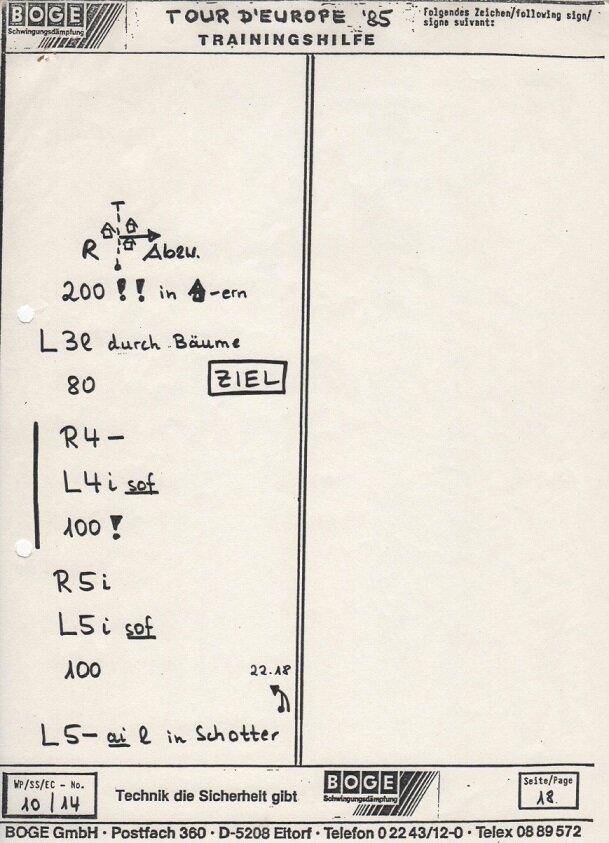 BOGE
Schwingungsdämpfung
TOUR D'EUROPE '85
TRAININGSHILFE
Folgendes Zeichen/following sign/
signe suivant:
R Abzw.
200 !! in -ern
L3l durch Bäume
80
ZIEL
R4-
L4i sof
100 !
R5i
L5i sof
100
22.18
L5- ai l in Schotter
WP/SS/EC - No.
10/14
Technik die Sicherheit gibt
BOGE
Schwingungsdämpfung
Seite/Page
18
BOGE GmbH · Postfach 360 · D-5208 Eitorf · Telefon 0 22 43/12-0 · Telex 08 89 572